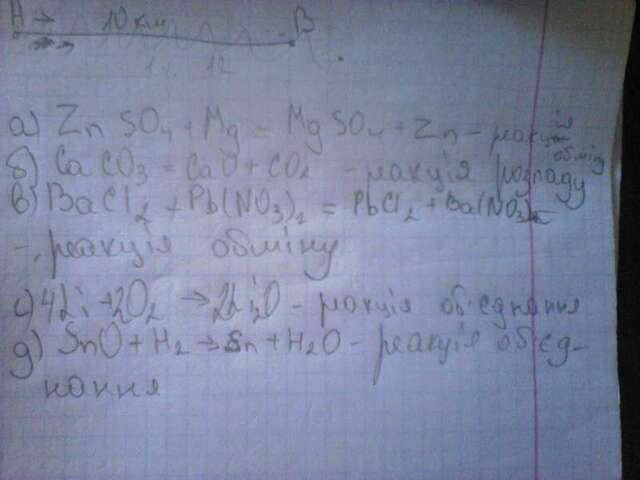 A → 10 км B
12
а) ZnSO₄ + Mg = MgSO₄ + Zn - реакція обмін
б) CaCO₃ = CaO + CO₂ - реакція розпаду
в) BaCl₂ + Pb(NO₃)₂ = PbCl₂ + Ba(NO₃)₂
- реакція обміну
с) 4Li + 2O₂ → 2Li₂O - реакція об'єднання
д) SnO + H₂ → Sn + H₂O - реакція об'єд-
нання